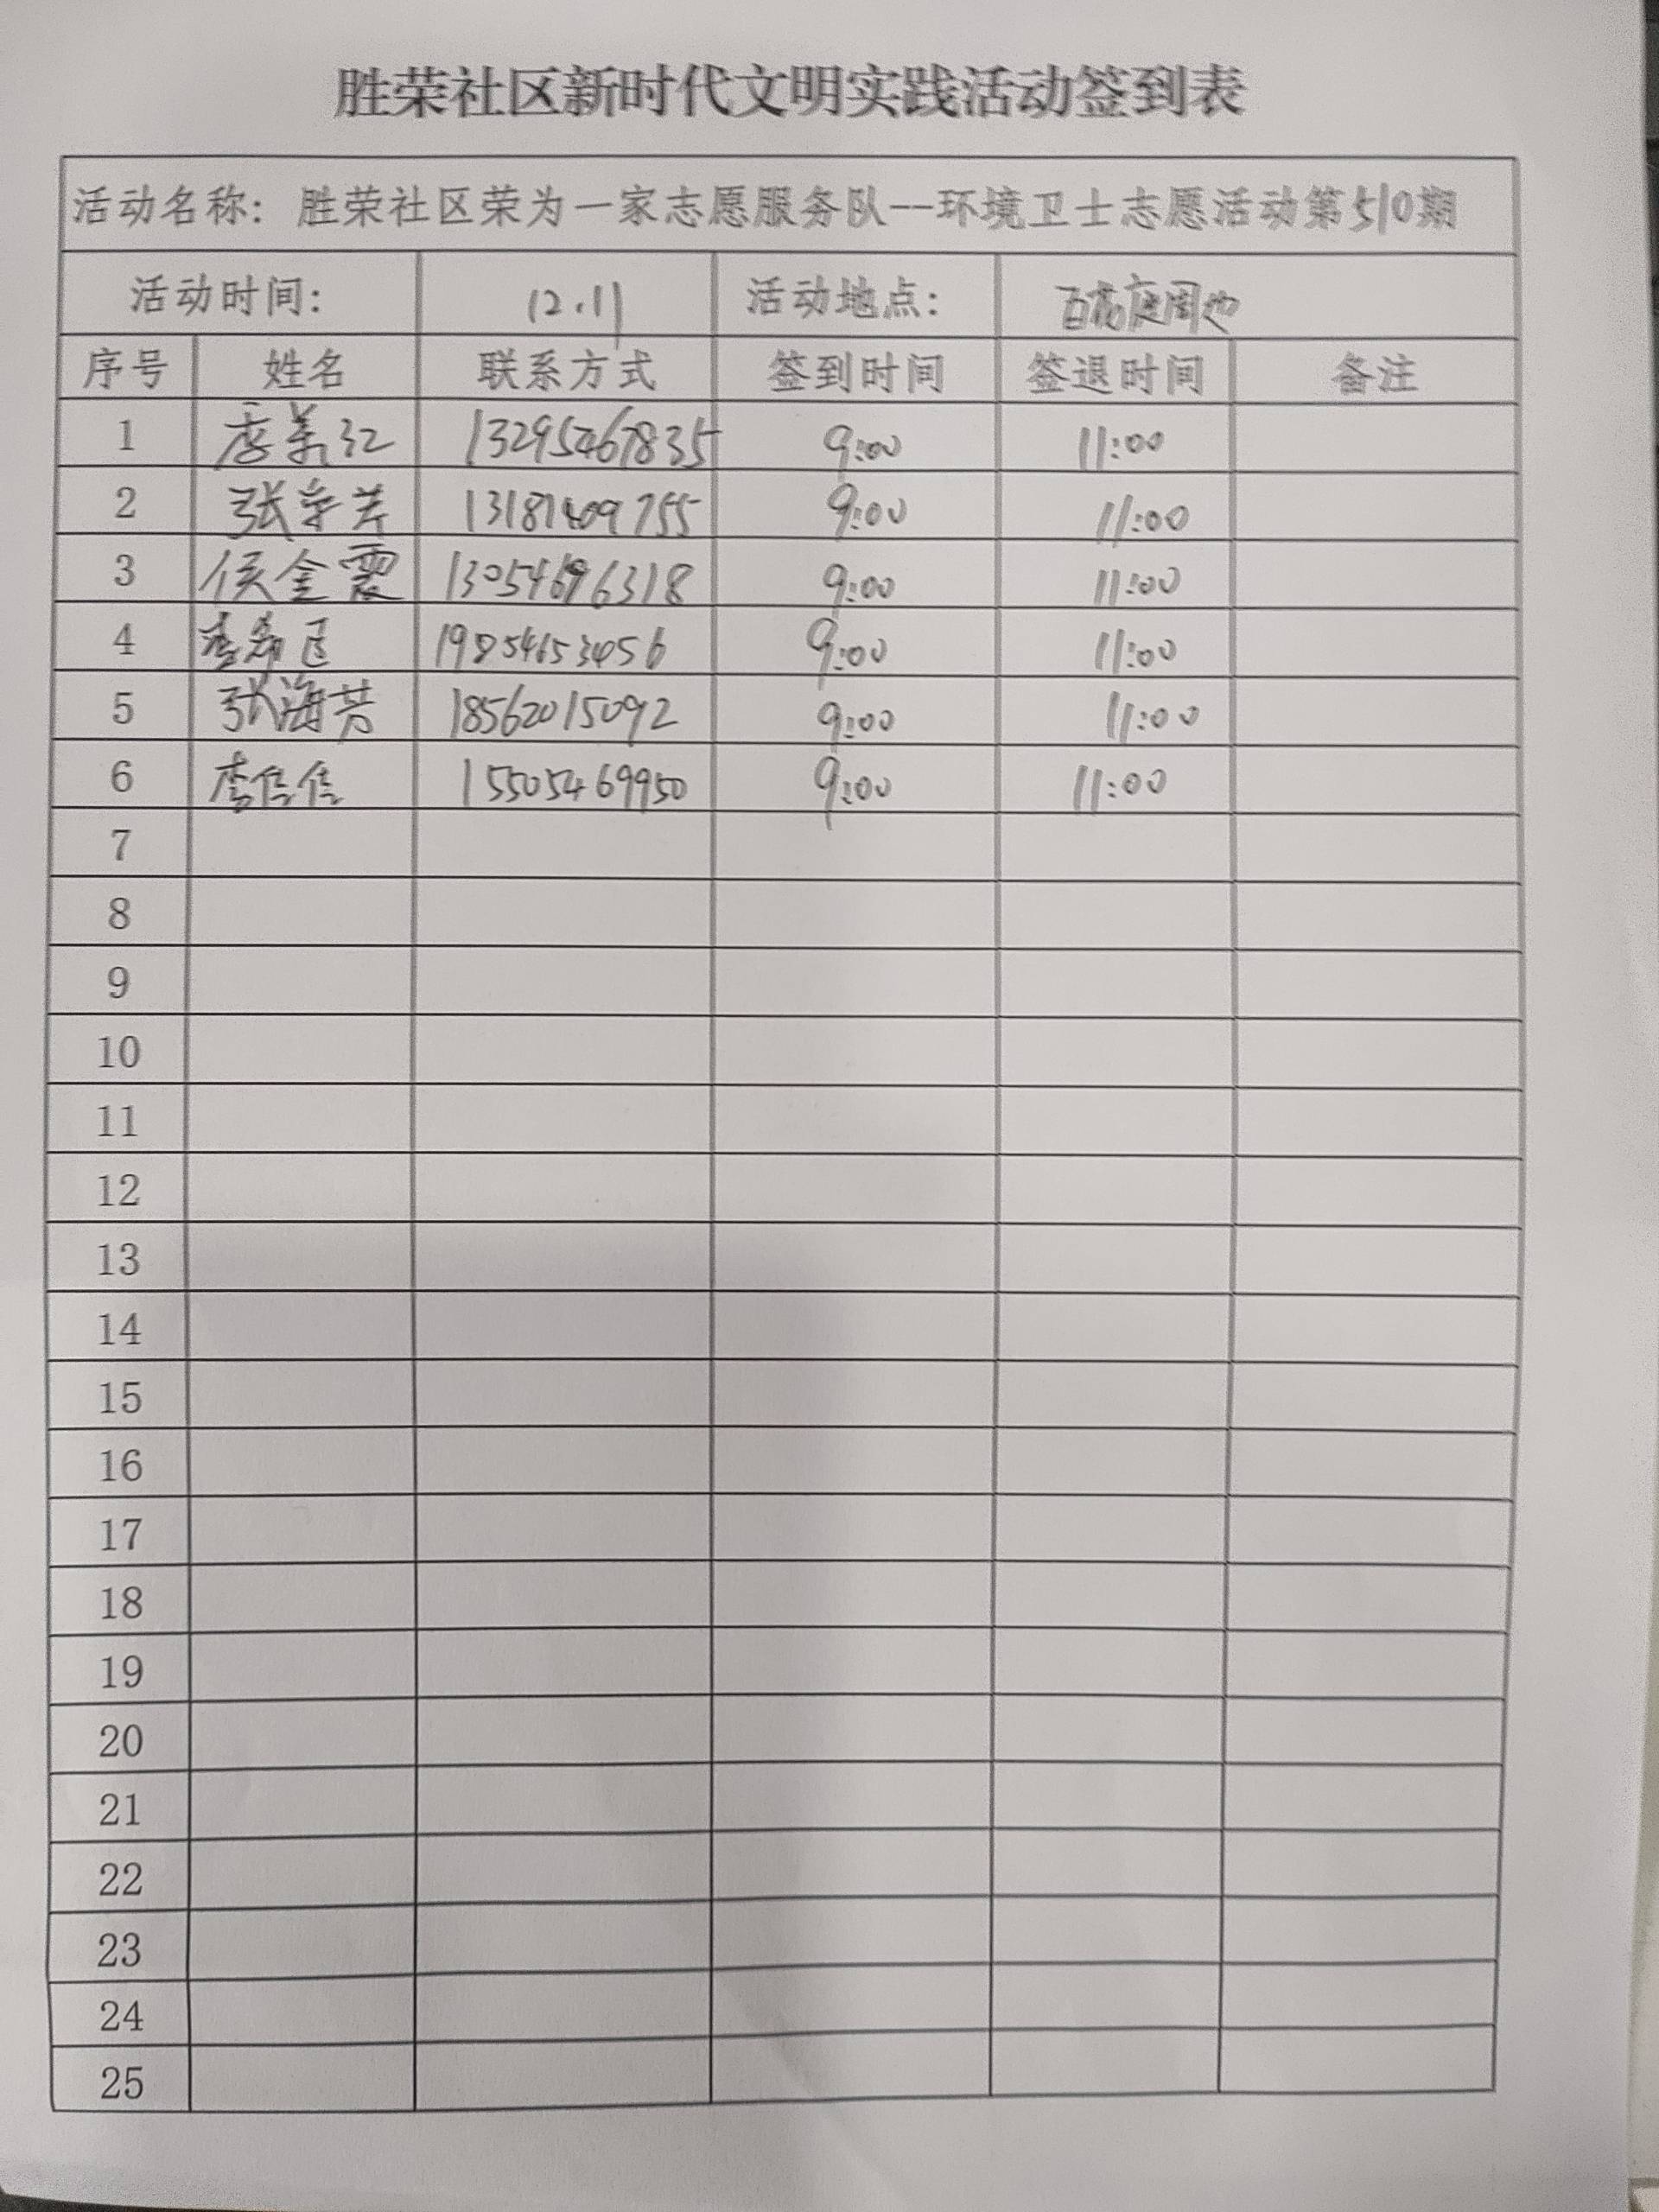 胜荣社区新时代文明实践活动签到表
活动名称：胜荣社区荣为一家志愿服务队--环境卫士志愿活动第510期
活动时间： 12.11 活动地点： 百花庭周边
序号 姓名 联系方式 签到时间 签退时间 备注
1 13295467835 9:00 11:00
2 9:00 11:00
3 侯金震 13054696318 9:00 11:00
4 9:00 11:00
5 张海芳 18562015092 9:00 11:00
6 李佳佳 15505469950 9:00 11:00
7
8
9
10
11
12
13
14
15
16
17
18
19
20
21
22
23
24
25